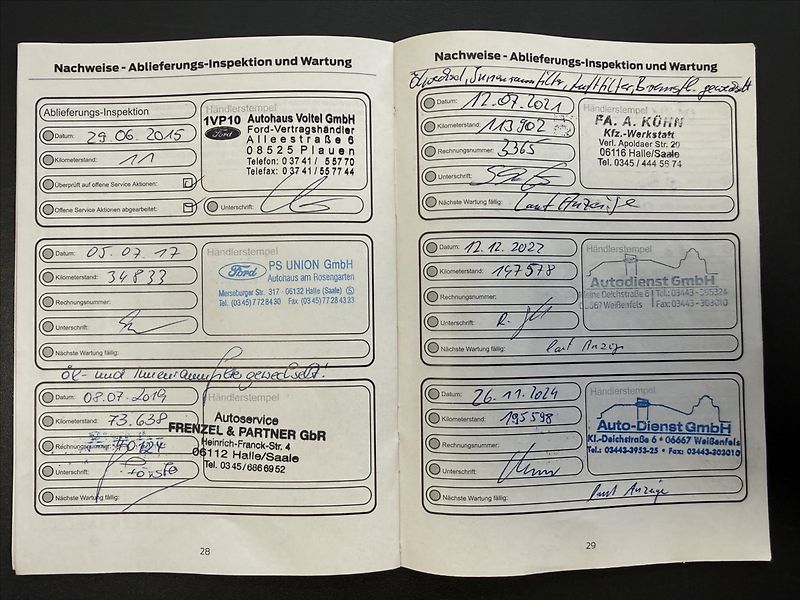 Nachweise - Ablieferungs-Inspektion und Wartung
Ablieferungs-Inspektion
Datum: 29.06.2015
Kilometerstand: 11
Überprüft auf offene Service Aktionen:
Offene Service Aktionen abgearbeitet:
Händlerstempel
1VP10 Autohaus Voltel GmbH
Ford Ford-Vertragshändler
Alleestraße 6
08525 Plauen
Telefon: 03741/ 55770
Telefax: 03741/ 557744
Unterschrift:
Datum: 05.07.17
Kilometerstand: 34833
Rechnungsnummer:
Unterschrift:
Nächste Wartung fällig:
Händlerstempel
Ford PS UNION GmbH
Autohaus am Rosengarten
Merseburger Str. 317 · 06132 Halle (Saale)
Tel. (0345) 7728430 Fax (0345) 7728433
Öl- und Innenraumfilter gewechselt!
Datum: 08.07.2019
Kilometerstand: 73.638
Rechnungsnummer:
Unterschrift:
Nächste Wartung fällig:
Händlerstempel
Autoservice
FRENZEL & PARTNER GbR
Heinrich-Franck-Str. 4
06112 Halle/Saale
Tel. 0345/6866952
28
Nachweise - Ablieferungs-Inspektion und Wartung
Ölwechsel, Innenraumfilter, Luftfilter Bremsfl. gewechselt
Datum: 12.07.2021
Kilometerstand: 113.902
Rechnungsnummer: 3365
Unterschrift:
Nächste Wartung fällig: laut Anzeige
FA. A. KÜHN
Kfz.-Werkstatt
Verl. Apoldaer Str. 20
06116 Halle/Saale
Tel. 0345 / 444 56 74
Datum: 12.12.2022
Kilometerstand: 147578
Rechnungsnummer:
Unterschrift:
Nächste Wartung fällig: laut Anzeige
Händlerstempel
Autodienst GmbH
Kleine Deichstraße 6 Tel.: 03443-395324
06667 Weißenfels Fax: 03443-303010
Datum: 26.11.2024
Kilometerstand: 195598
Rechnungsnummer:
Unterschrift:
Nächste Wartung fällig: laut Anzeige
Händlerstempel
Auto-Dienst GmbH
Kl.-Deichstraße 6 • 06667 Weißenfels
Tel.: 03443-3953-25 • Fax: 03443-303010
29